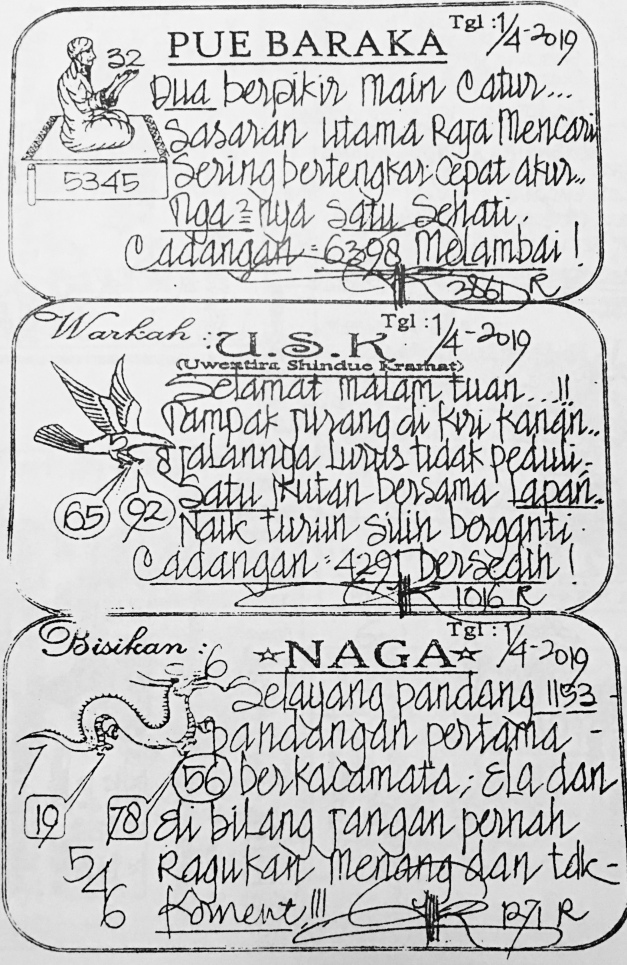 PUE BARAKA Tgl : 1/4-2019
32
Dua berpikir Main Catur...
Sasaran Utama Raja Mencari
5345
Sering bertengkar Cepat akur..
Nga2nya Satu Sehati.
Cadangan = 6398 Melambai !
2861 R
Warkah : U.S.K Tgl : 1/4-2019
(Uwentira Shindue Kramat)
Selamat malam tuan...!!
Tampak Jurang di Kiri Kanan..
Jalannya Lurus tidak peduli.
65 92
Satu ikutan bersama Lapan.
Naik turun Silih berganti.
Cadangan = 4291 bersedih !
1016 R
Bisikan : ☆NAGA☆ Tgl : 1/4-2019
6
Selayang pandang 1153
pandangan pertama -
7
56 berkacamata, Ela dan
19 78 di bilang Jangan pernah
546 Ragukan Menang dan tdk-
Koment !!!
1271 R